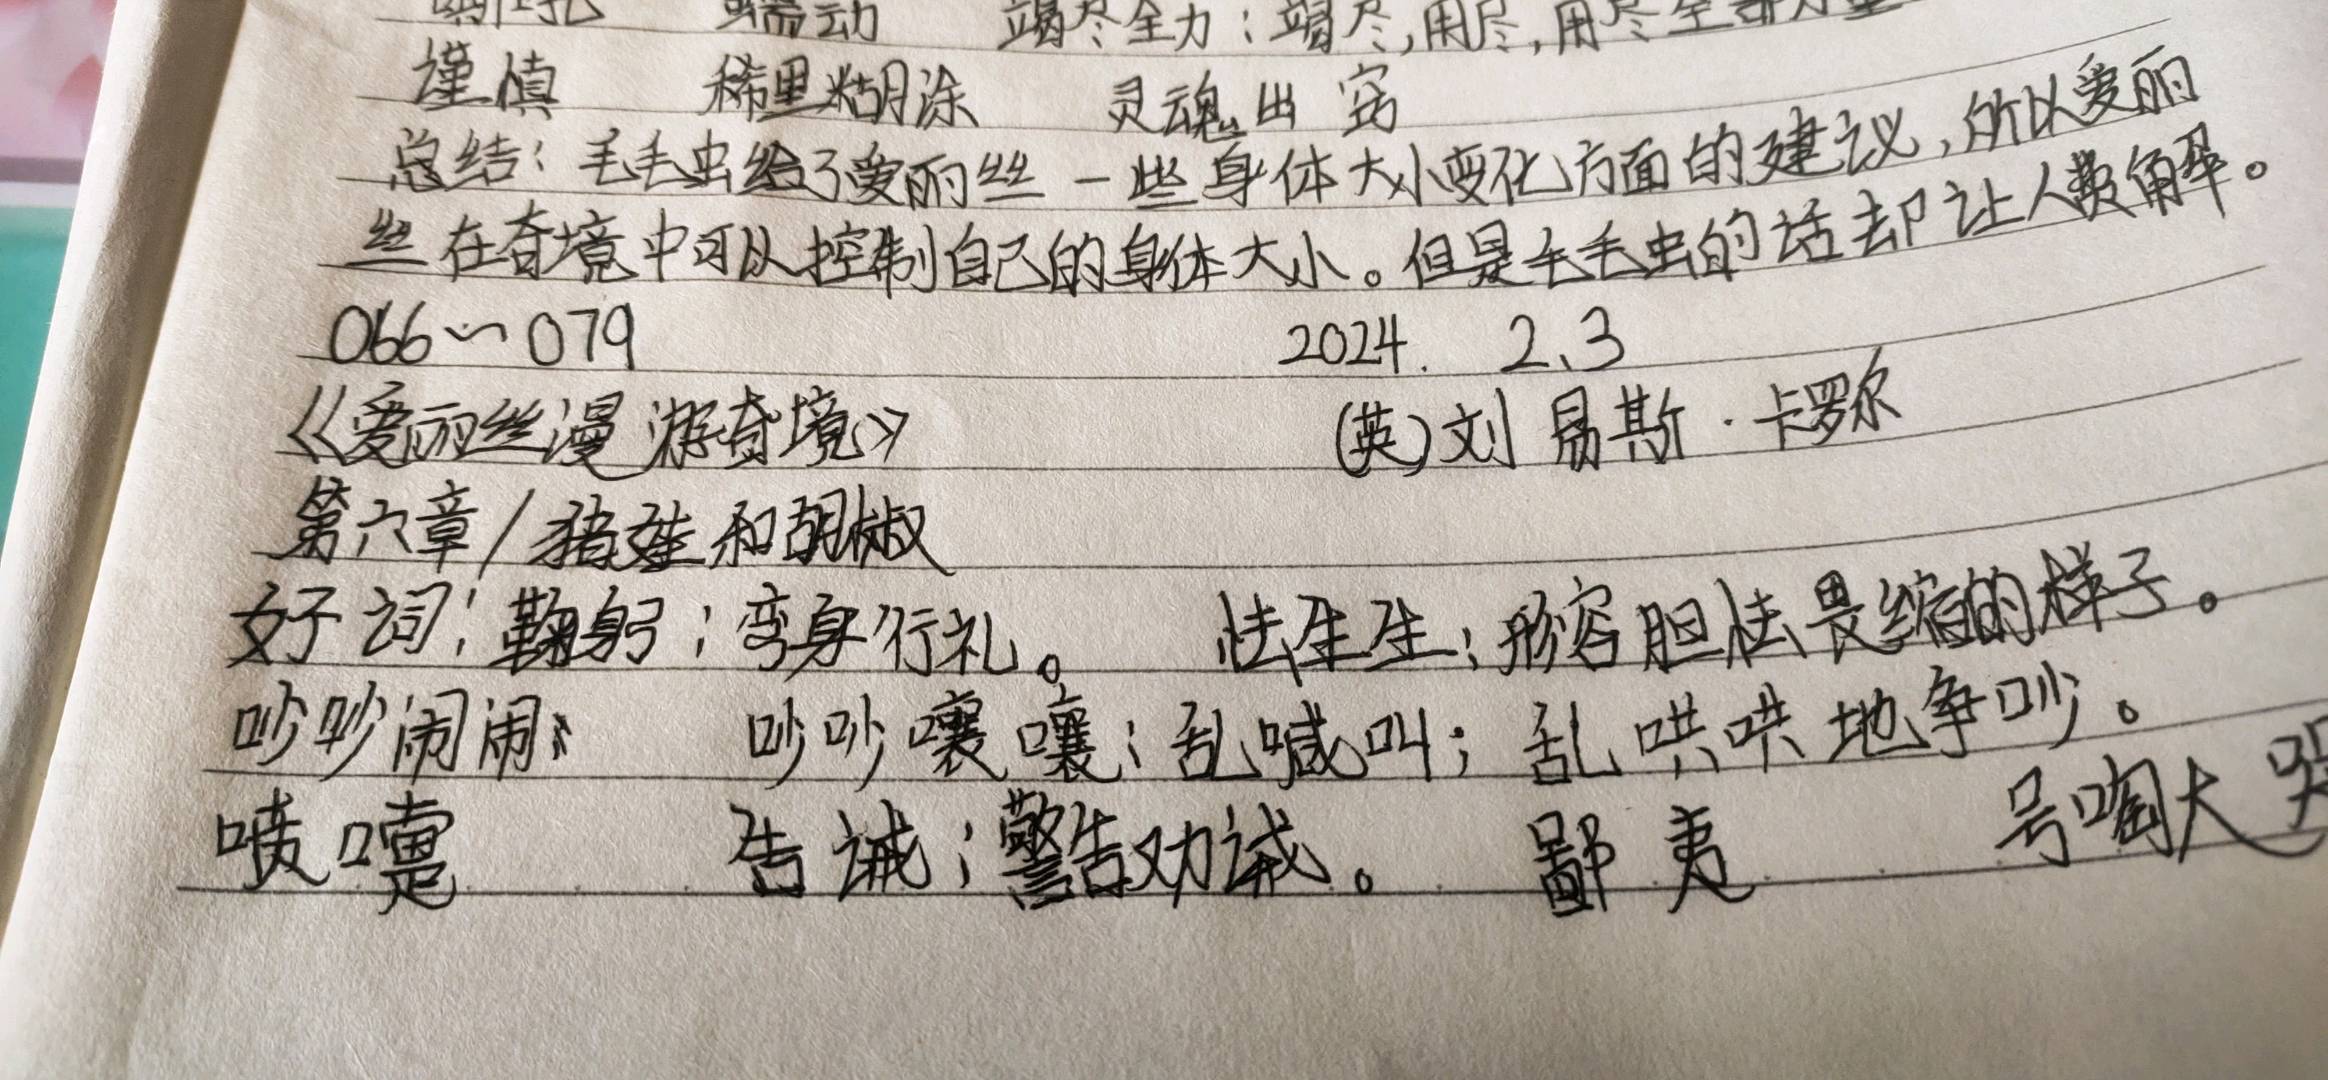 蠕动 竭尽全力：竭尽，用尽，用尽全部力量
谨慎 稀里糊涂 灵魂出窍
总结：毛毛虫给了爱丽丝一些身体大小变化方面的建议，所以爱丽
丝在奇境中可以控制自己的身体大小。但是毛毛虫的话却让人费解。
066~079 2024. 2.3
《爱丽丝漫游奇境》 (英)刘易斯·卡罗尔
第六章/猪娃和胡椒
好词：鞠躬：弯身行礼。 怯生生：形容胆怯畏缩的样子。
吵吵闹闹 吵吵嚷嚷：乱喊叫；乱哄哄地争吵。
喷嚏 告诫：警告劝诫。 鄙夷 号啕大哭